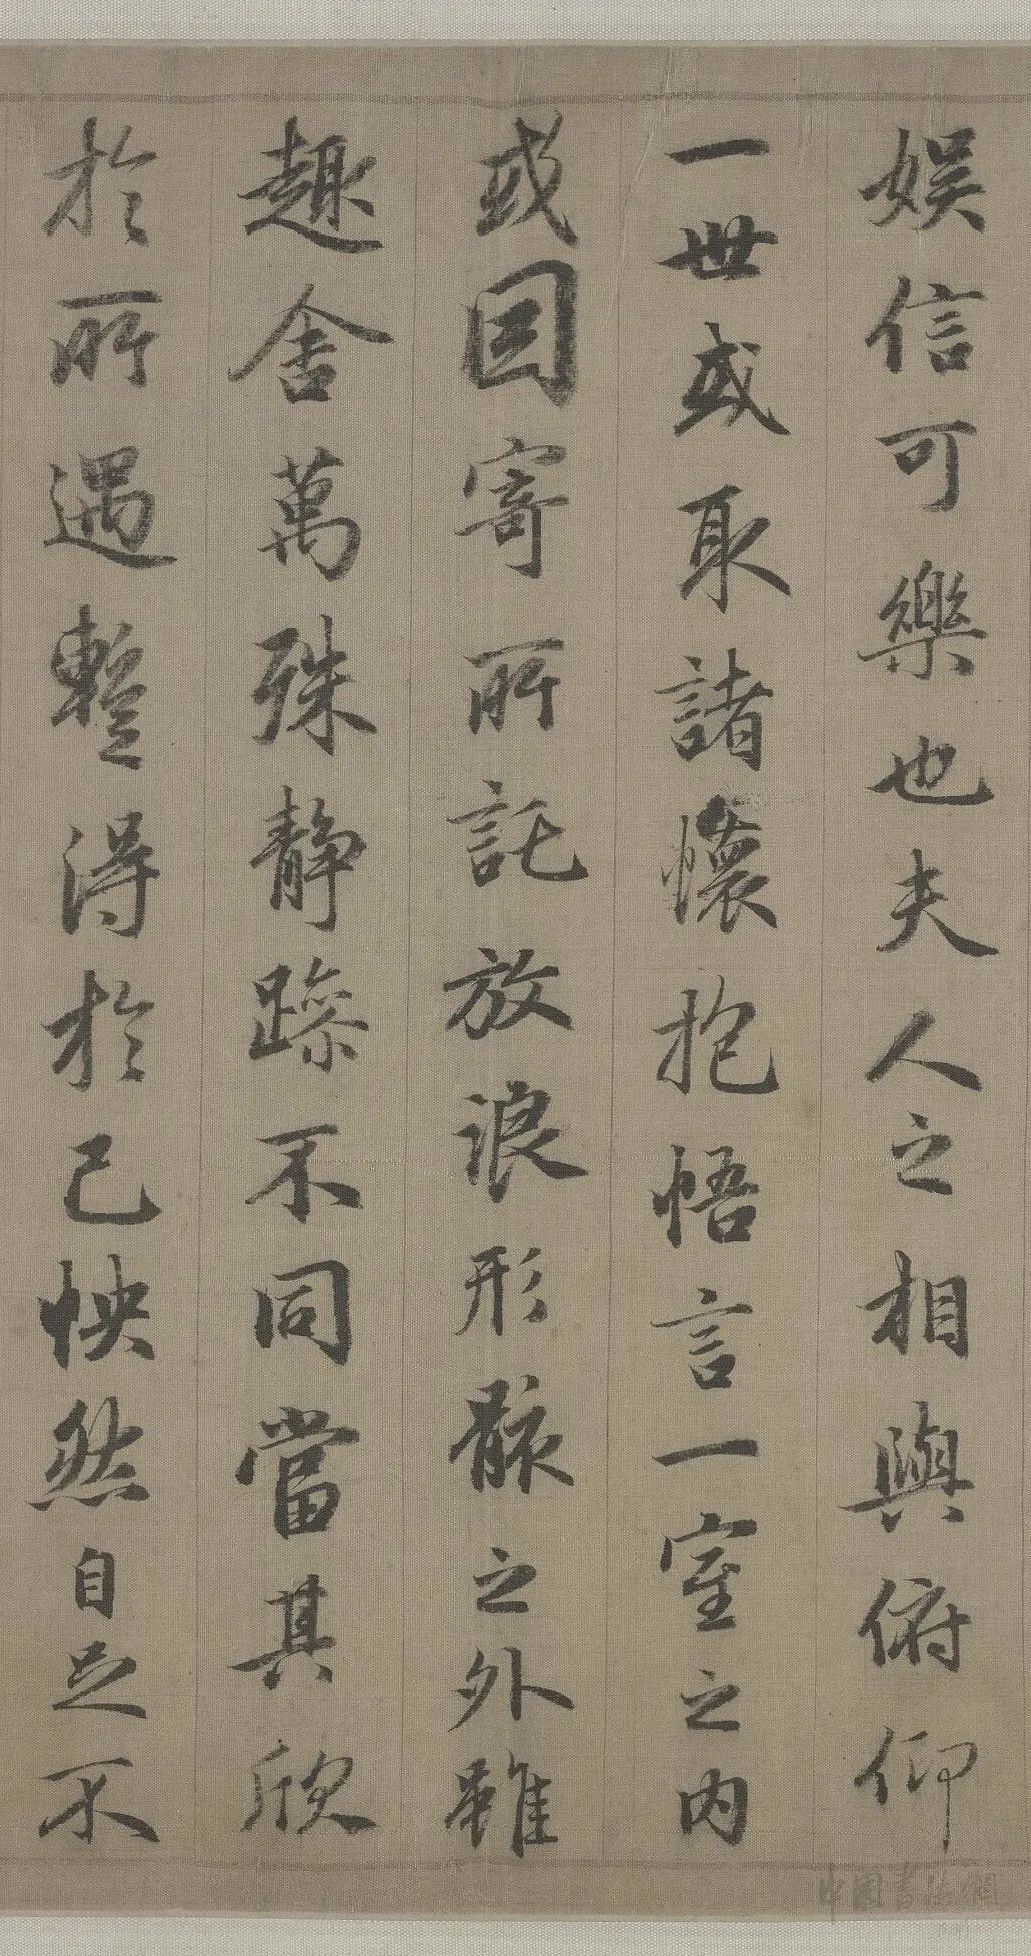 娱信可樂也夫人之相與俯仰
一世或取諸懷抱悟言一室之内
或因寄所託放浪形骸之外雖
趣舍萬殊静躁不同當其欣
於所遇蹔得於己怏然自足不
中国书法網